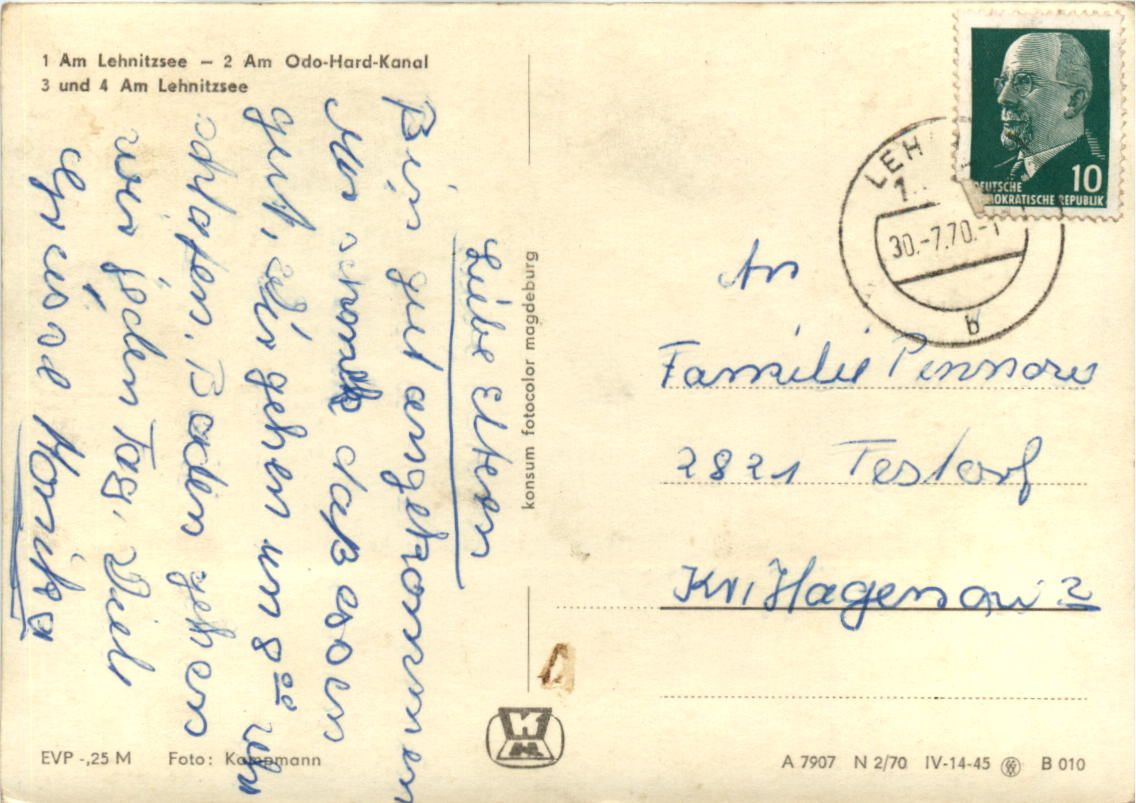 1 Am Lehnitzsee – 2 Am Odo-Hard-Kanal
3 und 4 Am Lehnitzsee
Liebe Eltern
Bin gut angekommen
Mir schmeckt daß essen
gut, wir gehen um 8 00 uhr
schlafen. Baden gehen
wir jeden Tag. Viele
Grüsse Monika
konsum fotocolor magdeburg
DEUTSCHE
DEMOKRATISCHE REPUBLIK
10
LEH
30.-7.70.-1
b
An
Familie
2821 Testorf
Kr. Hagenow 2
EVP -,25 M Foto: Kampmann
A 7907 N 2/70 IV-14-45 B 010